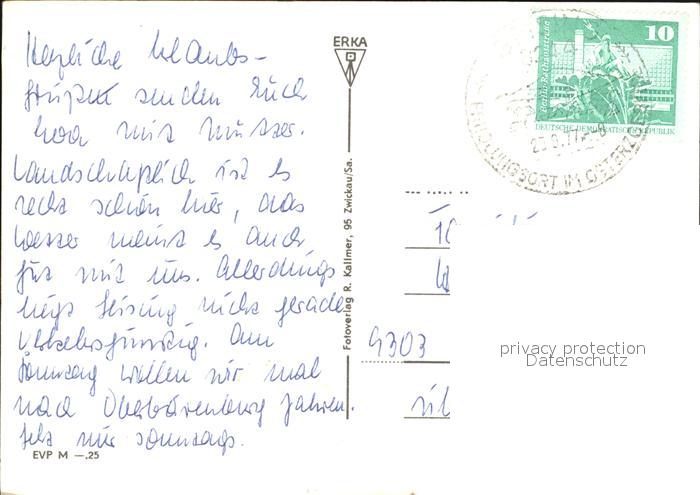 Herzliche Urlaubs-
grüße senden Euch
mit
Landschaftlich ist es
recht schön hier, das
Wetter meint es auch
gut mit uns. Allerdings
liegt Seising nicht gerade
verkehrsgünstig. Am
Sonntag wollen wir mal
nach Oberbärenburg fahren.
nur sonntags.
EVP M —.25
ERKA
Fotoverlag R. Kallmer, 95 Zwickau/Sa.
10
Berlin, Rathausstraße
DEUTSCHE DEMOKRATISCHE REPUBLIK
ERHOLUNGSORT IM OSTERZGEB
9303
privacy protection
Datenschutz